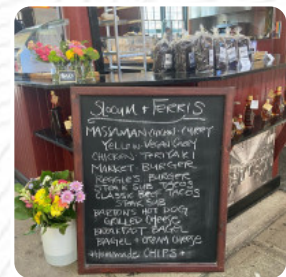 Slocum + FERRIS
MASSAMAN CHICKEN CURRY
YELLOW VEGAN CURRY
CHICKEN TERIYAKI
MARKET BURGER
REGGIE'S BURGER
STEAK SUB TACOS
CLASSIC BEEF TACOS
STEAK SUB
BARTON'S HOT DOG
GRILLED CHEESE
BREAKFAST BAGEL
BAGEL + CREAM CHEESE
Homemade CHIPS